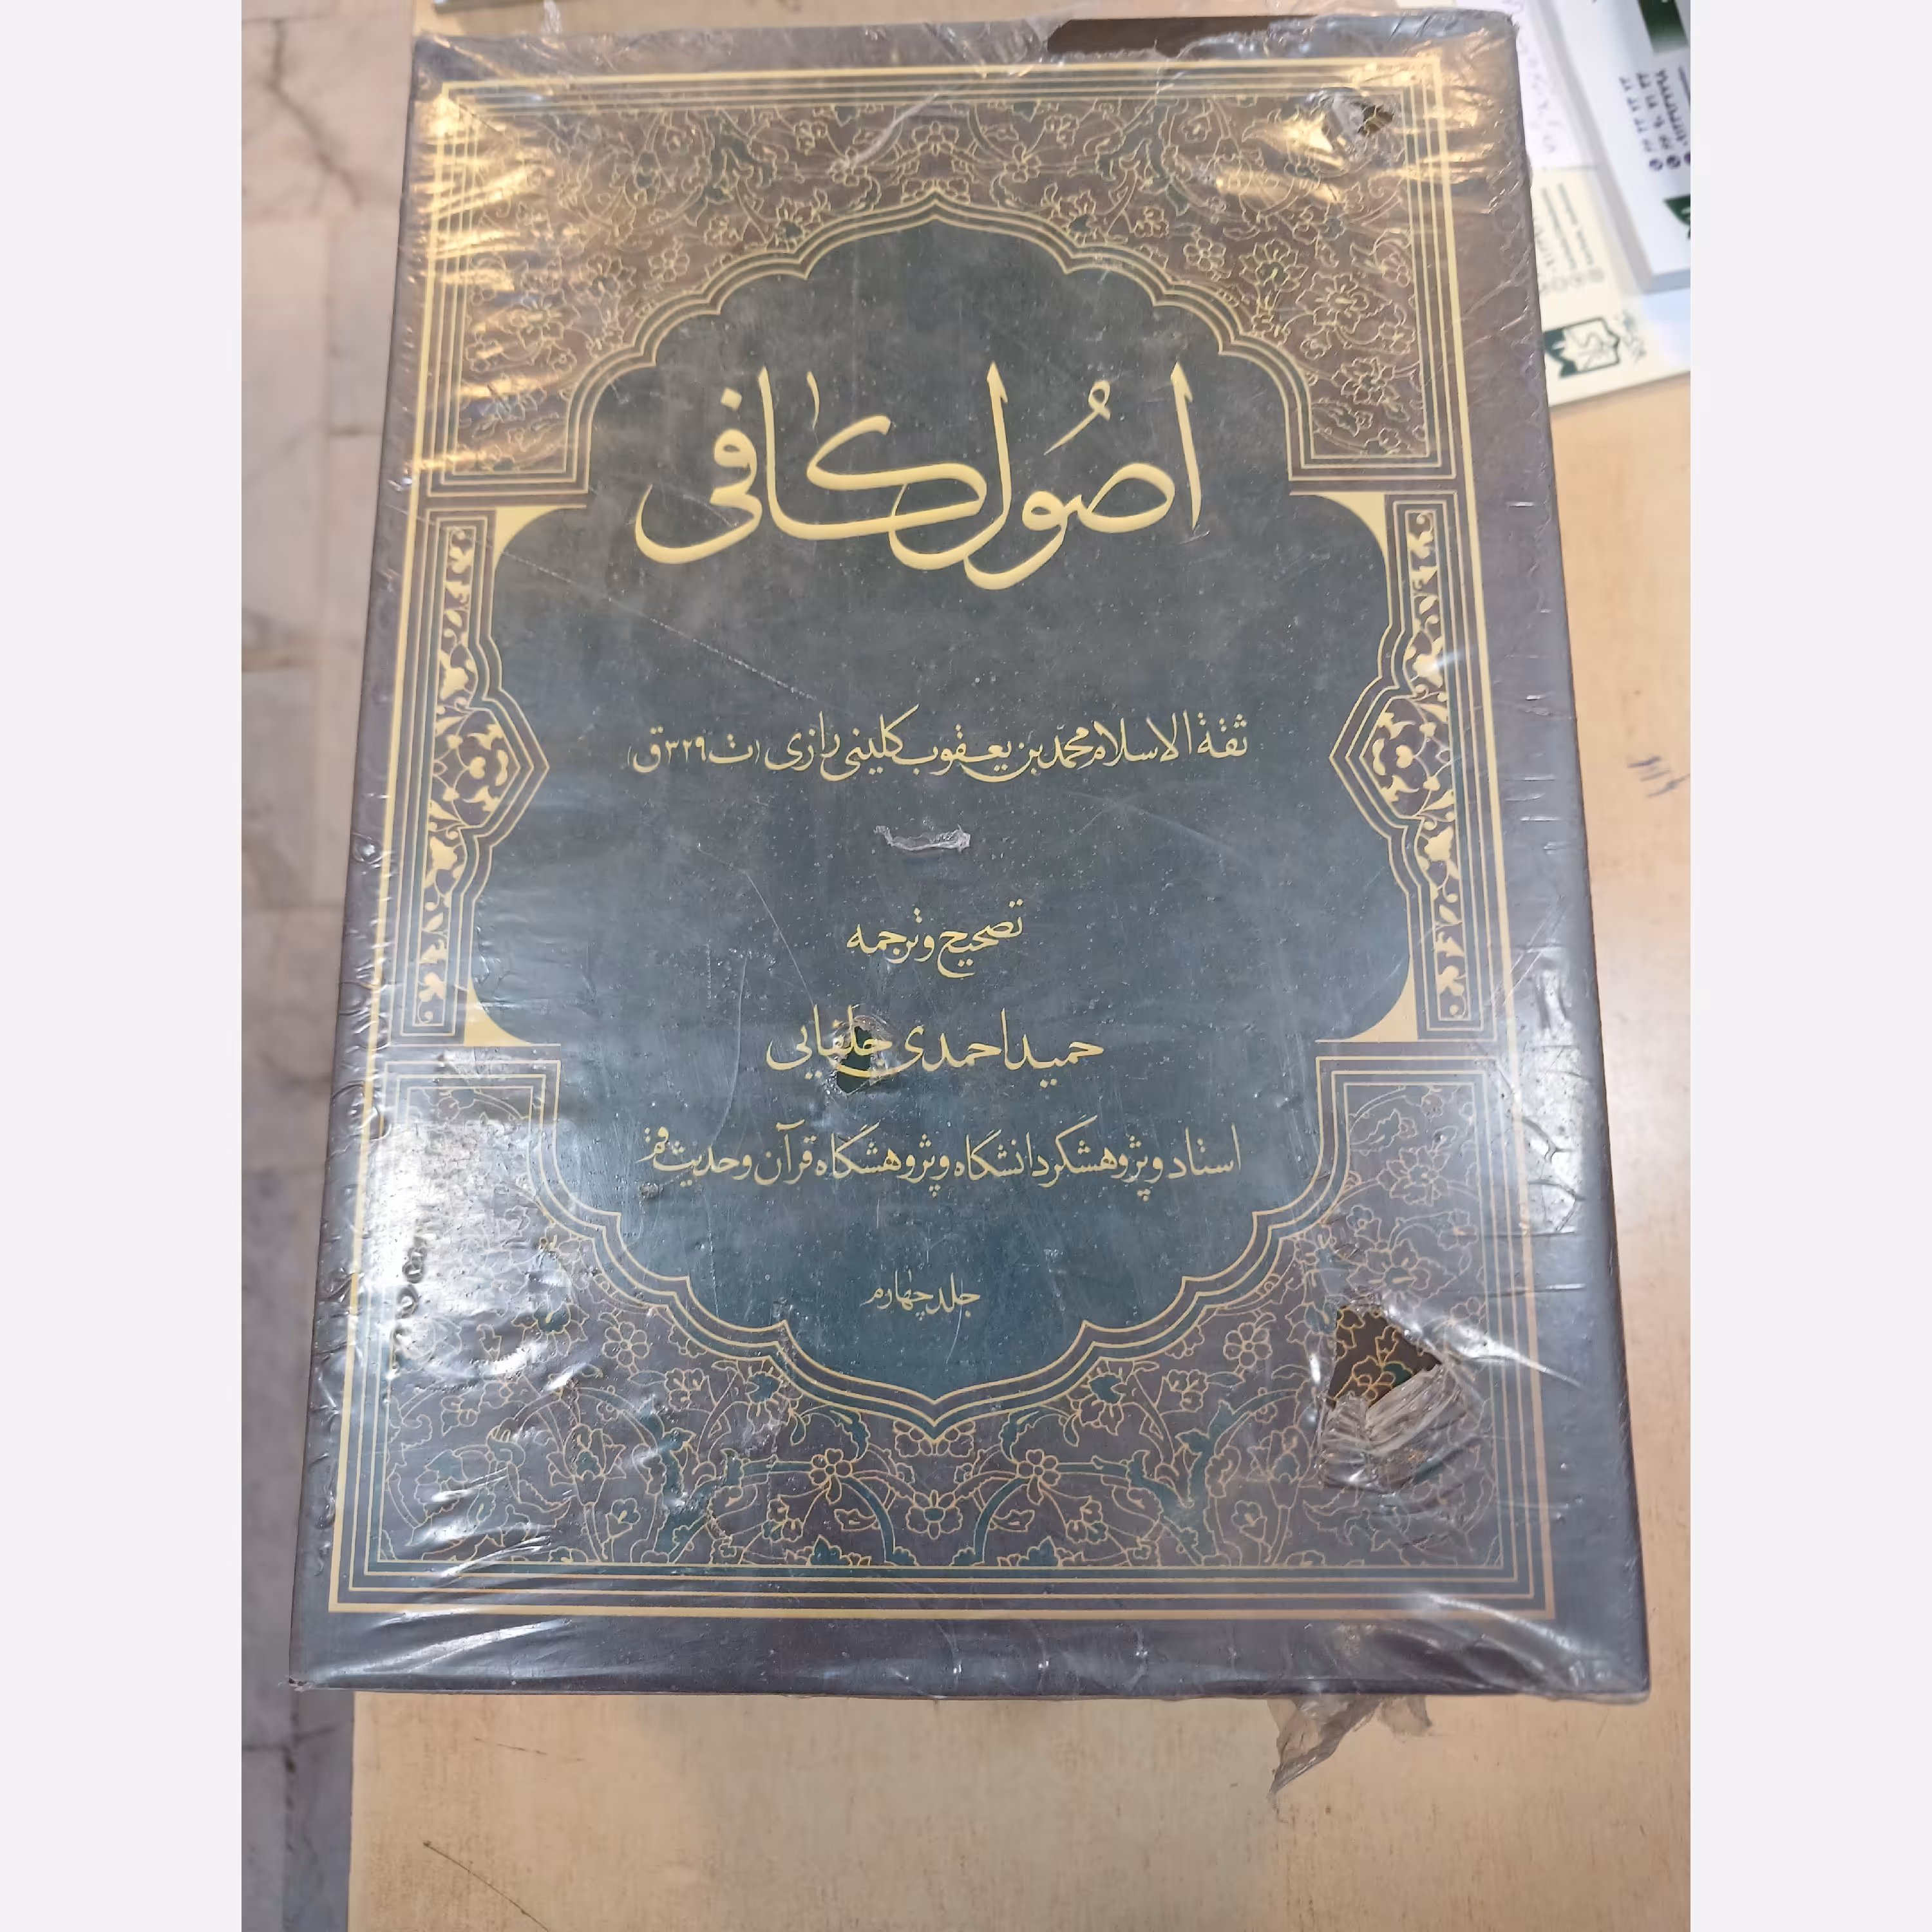 اصُول کافی
ثقة الاسلام محمّد بن یعقوب کلینی رازی (ت ۳۲۹ ق)
تصحیح و ترجمه
حمید احمدی جلفایی
استاد و پژوهشگر دانشگاه و پژوهشگاه قرآن و حدیث قم
جلد چهارم